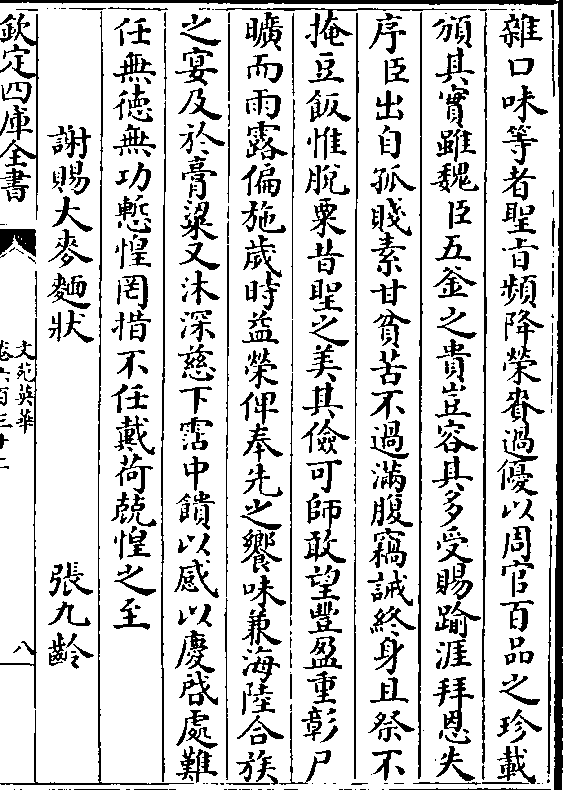 雜口味等者聖旨頻降榮眷過優以周官百品之珍載
頒其實雖魏臣五釡之貴豈容其多受賜踰涯拜恩失
序臣出自孤賤素甘貧苦不過滿腹竊誠終身且祭不
掩豆飯惟脫粟昔聖之美其儉可師敢望豐盈重彰尸
曠而雨露偏施歲時益榮俾奉先之饗味兼海陸合族
之宴及於膏粱又沐深慈下霑中饋以感以慶啓處難
任無德無功慙惶罔措不任戴荷兢惶之至
謝賜大麥麵狀 張九齡
欽定四庫全書
文苑英華
卷六百三十二
八